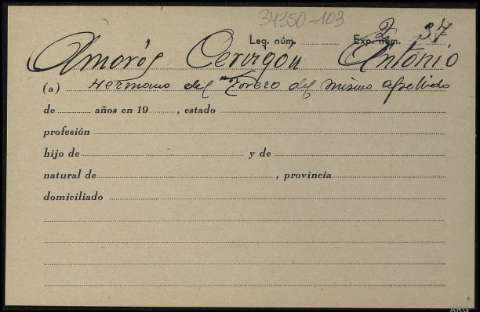 34350-103
Leg. núm. Exp. núm. 2 37
Amorós Cervigon Antonio
(a) Hermano del Torero del mismo apellido
de años en 19 , estado
profesión
hijo de y de
natural de , provincia
domiciliado